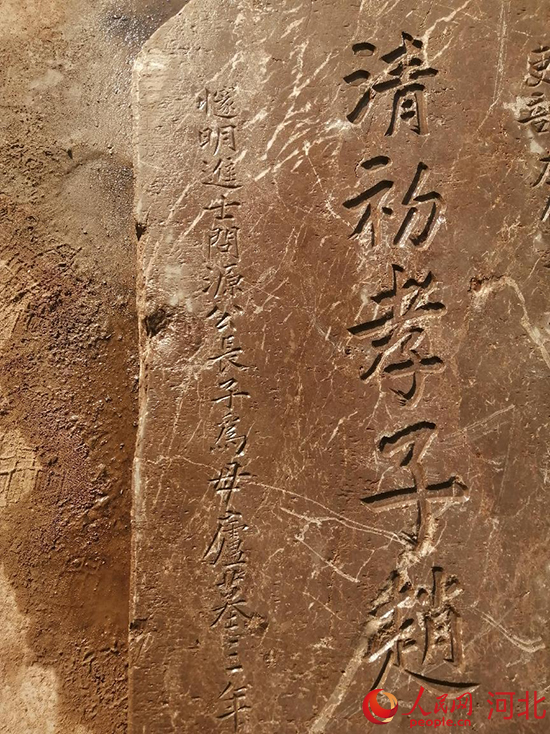 清初孝子趙
明進士開源公長子爲母廬墓三年
人民网 河北
people.cn